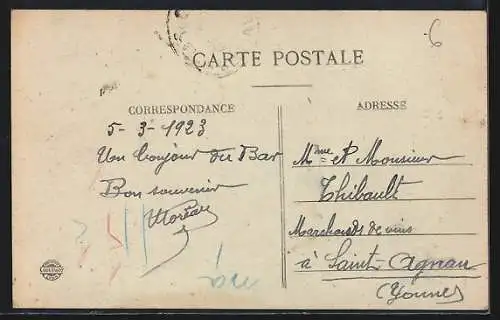 6
CARTE POSTALE
CORRESPONDANCE
ADRESSE
5-3-1923
Un bonjour du Bar
Bon souvenir
Mme et Monsieur
Thibault
Marchands de vins
à Saint-Agnan
(Yonne)